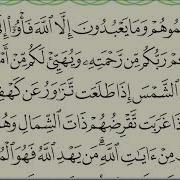 ـمُوهُمْ وَمَا يَعْبُدُونَ إِلَّا ٱللَّهَ فَأْوُۥٓا۟ إِلَـ
ـمْ رَبُّكُم مِّن رَّحْمَتِهِۦ وَيُهَيِّئْ لَكُم مِّنْ أَمـ
ٱلشَّمْسَ إِذَا طَلَعَت تَّزَٰوَرُ عَن كَهْفِـ
ذَا غَرَبَت تَّقْرِضُهُمْ ذَاتَ ٱلشِّمَالِ وَهُمـ
مِنْ ءَايَٰتِ ٱللَّهِ ۗ مَن يَهْدِ ٱللَّهُ فَهُوَ ٱلْمُـ